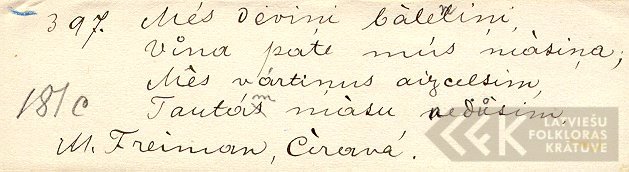 397. Mēs deviņi bāleliņi,
Vůna pate mūs māsiņa;
Mēs vārtiņus aizcelsim,
18/c Tautām māsu nedůsim,
M. Freiman, Cīravā.
LATVIEŠU
FOLKLORAS
KRĀTUVE